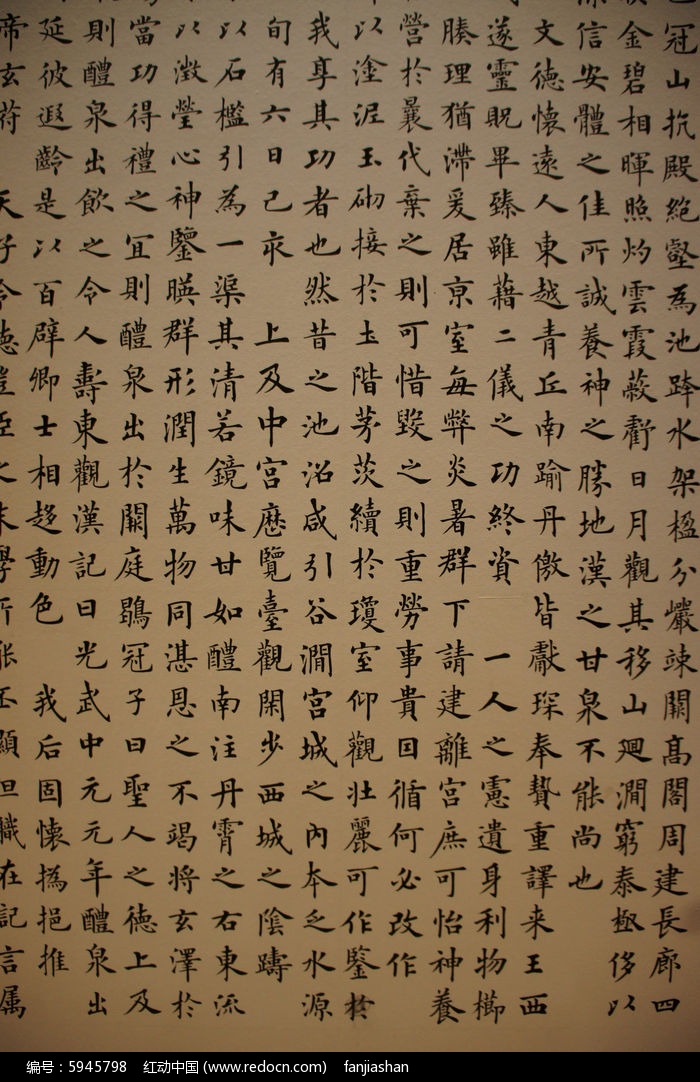 冠山抗殿絕壑為池跨水架楹分巖竦闕高閣周建長廊四
金碧相暉照灼雲霞蔽虧日月觀其移山廻澗窮泰極侈以
信安體之佳所誠養神之勝地漢之甘泉不能尚也
文德懷遠人東越青丘南踰丹儌皆獻琛奉贄重譯来王西
遂靈貺畢臻雖藉二儀之功終資 一人之慮遺身利物櫛
腠理猶滯爰居京室每弊炎暑群下請建離宮庶可怡神養
營於曩代棄之則可惜毀之則重勞事貴因循何必改作
以塗泥玉砌接於土階茅茨續於瓊室仰觀壮麗可作鑒於
我享其功者也然昔之池沼咸引谷澗宮城之內本乏水源
旬有六日己亥 上及中宮歷覽臺觀閑步西城之陰躊
以石檻引為一渠其清若鏡味甘如醴南注丹霄之右東流
以澂瑩心神鑒暎群形潤生萬物同湛恩之不竭将玄澤於
當功得禮之宜則醴泉出於闕庭鶡冠子曰聖人之德上及
則醴泉出飲之令人壽東觀漢記曰光武中元元年醴泉出
延彼遐齡是以百辟卿士相趍動色 我后固懷撝挹推
帝玄符 天子令德豈臣之末學所能丕顯但職在記言属
编号：5945798 红动中国 (www.redocn.com) fanjiashan